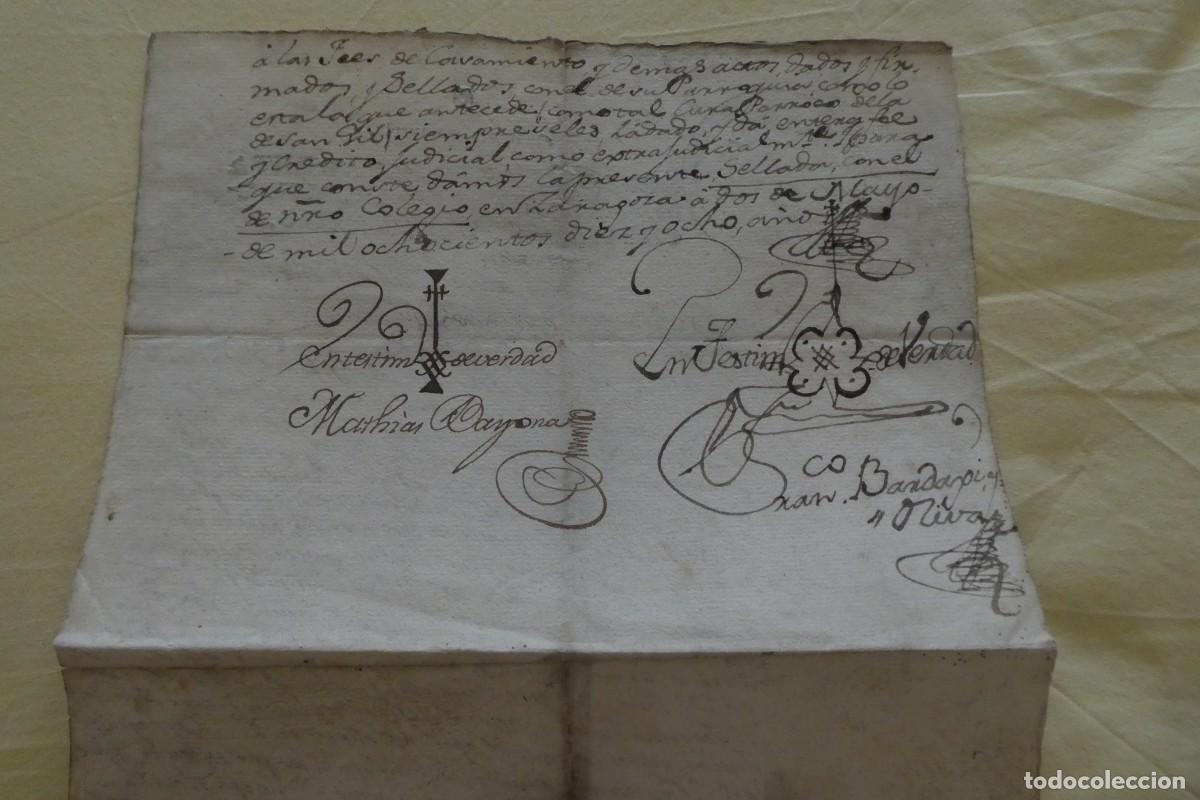 á las Fees de Casamiento y demas actos, dados y fir-
mados, y Sellados con el de su Parroquia, como lo
esta la que antecede, como tal Cura Parroco de la
de San Gil, siempre seles ha dado, y dá entera fee
y Credito, Judicial, como extrajudicial mte. y para
que conste dámos la presente, Sellada, con el
de nro Colegio, en Zaragoza á dos de Mayo-
- de mil ochocientos diez y ocho, año
En testim de verdad
En Testim de Verdad
Mathias Bayona
Franco. Bardaxi, y
y Oliva
todocoleccion